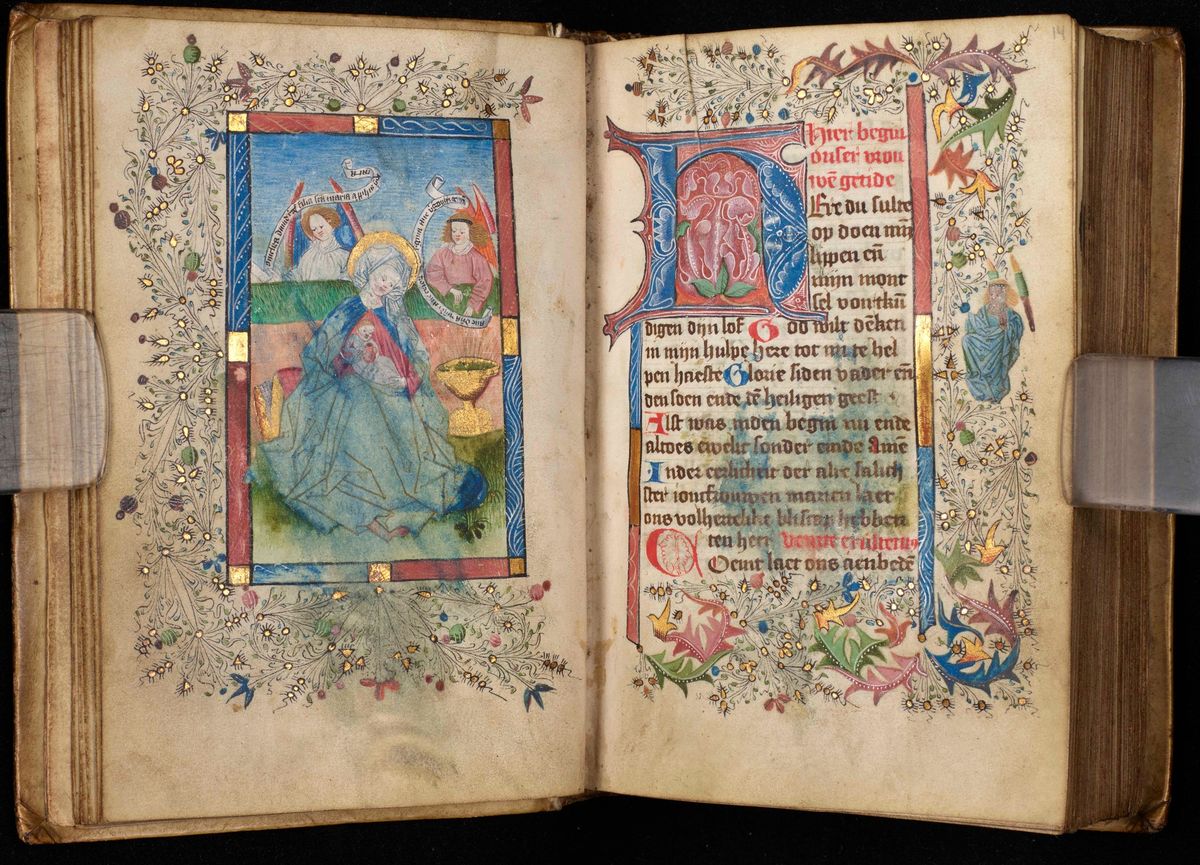 14
Hier begin
onser vrou
wē getide
HEre du sulte
op doen mijn
lippen eñ
mijn mont
sel vortkū
digen dijn lof God wilt dēken
in mijn hulpe here tot mi te hel
pen haeste Glorie si den vader eñ
den soen ende tē heiligen geest
Alst was inden begin nu ende
altoes ewelic sonder einde Amē
Inder eerlicheit der alre salich
ster ioncfrouwen marien laet
ons volhertelike bliscap hebben
ten here Venite exultemꝰ
Coemt laet ons aenbedē